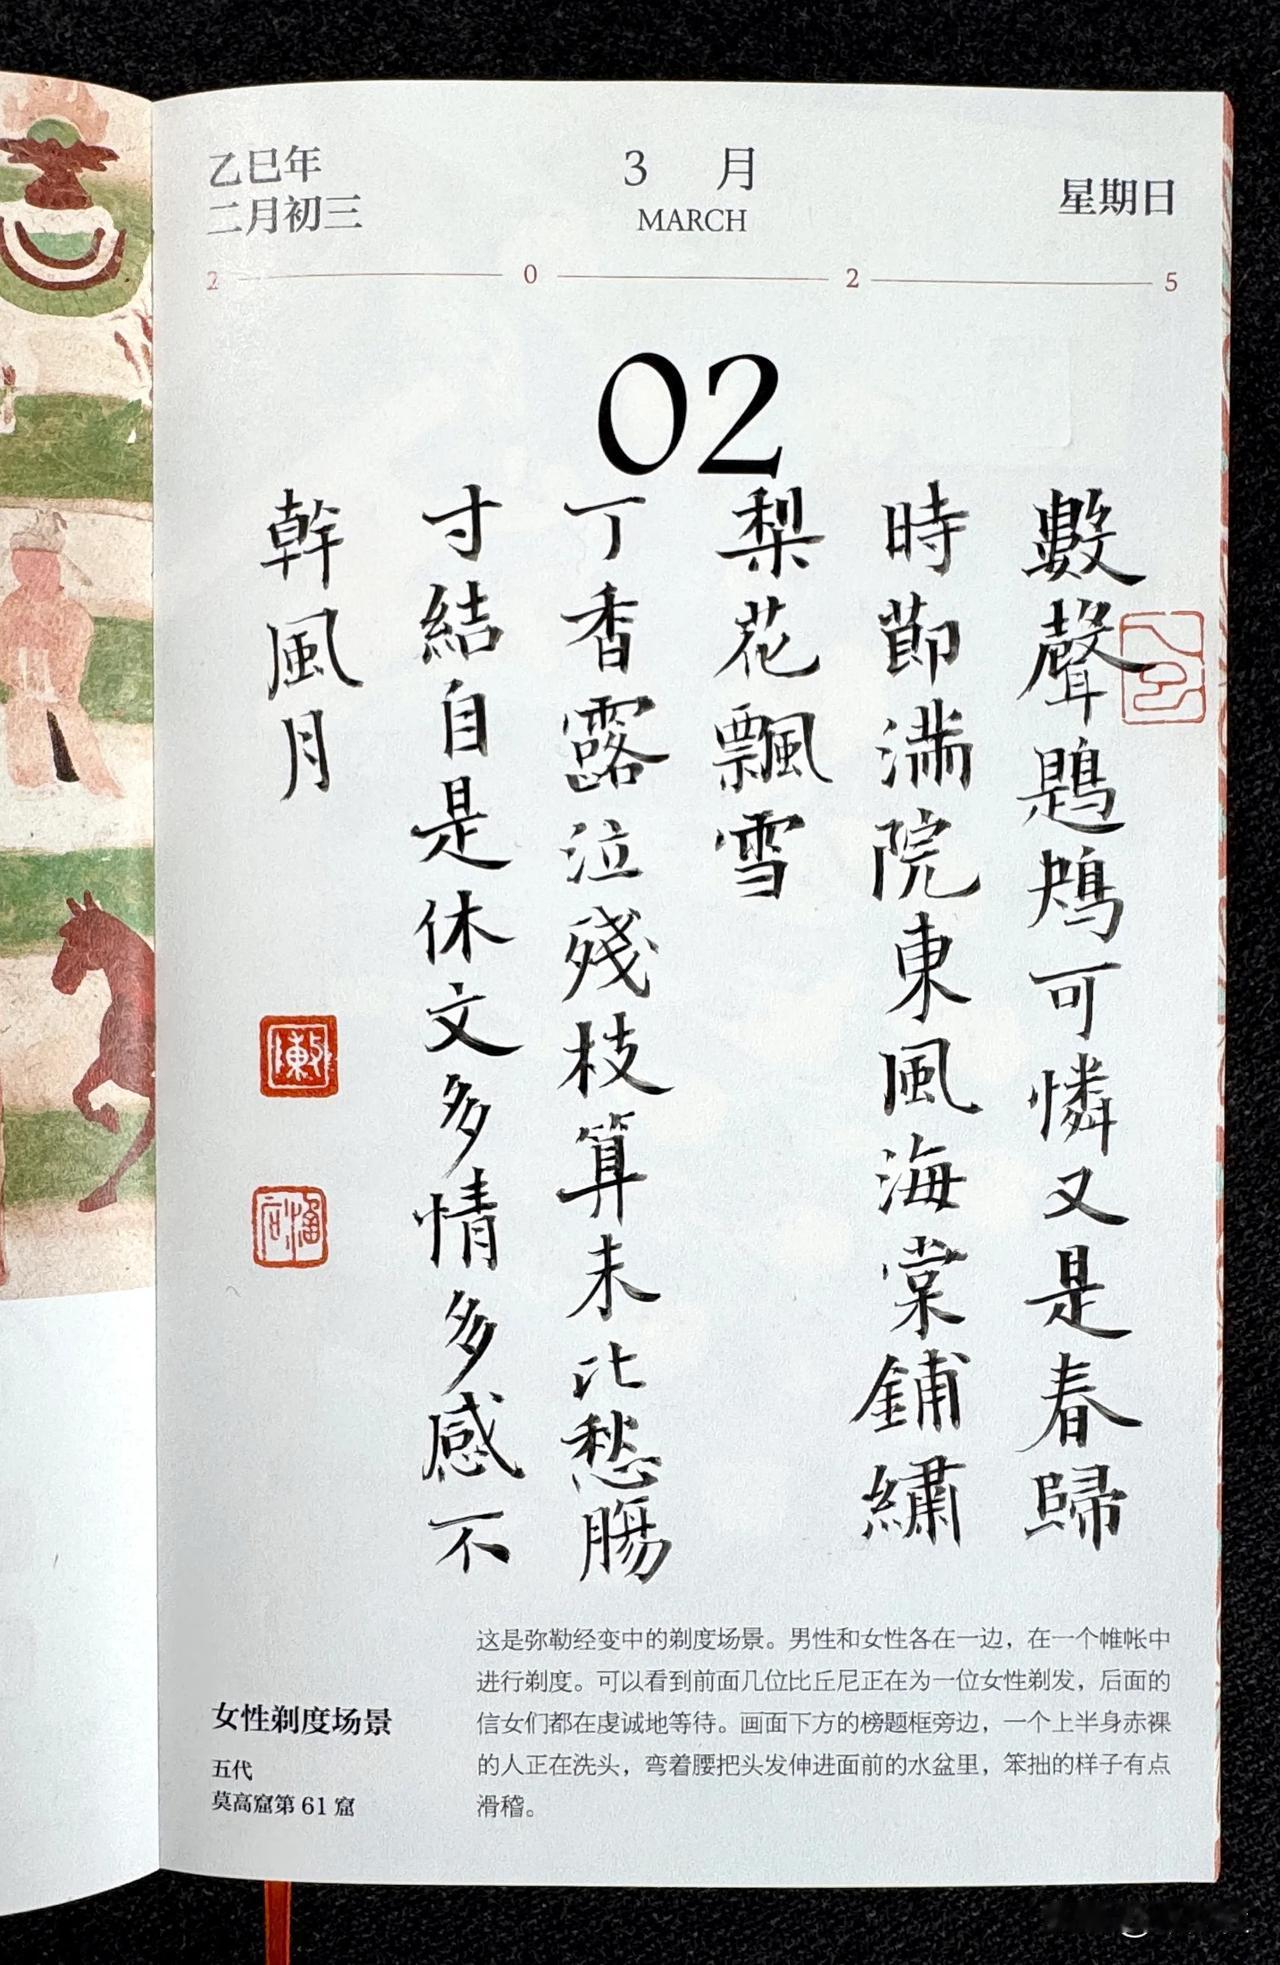 乙巳年
二月初三
3 月
MARCH
星期日
2 0 2 5
02
數聲鶗鴂可憐又是春歸
時節滿院東風海棠鋪繡
梨花飄雪
丁香露泣殘枝算未比愁腸
寸結自是休文多情多感不
幹風月
女性剃度场景
五代
莫高窟第 61 窟
这是弥勒经变中的剃度场景。男性和女性各在一边，在一个帷帐中
进行剃度。可以看到前面几位比丘尼正在为一位女性剃发，后面的
信女们都在虔诚地等待。画面下方的榜题框旁边，一个上半身赤裸
的人正在洗头，弯着腰把头发伸进面前的水盆里，笨拙的样子有点
滑稽。